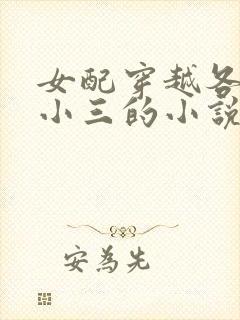 女配穿越各
小三的小說
安為先